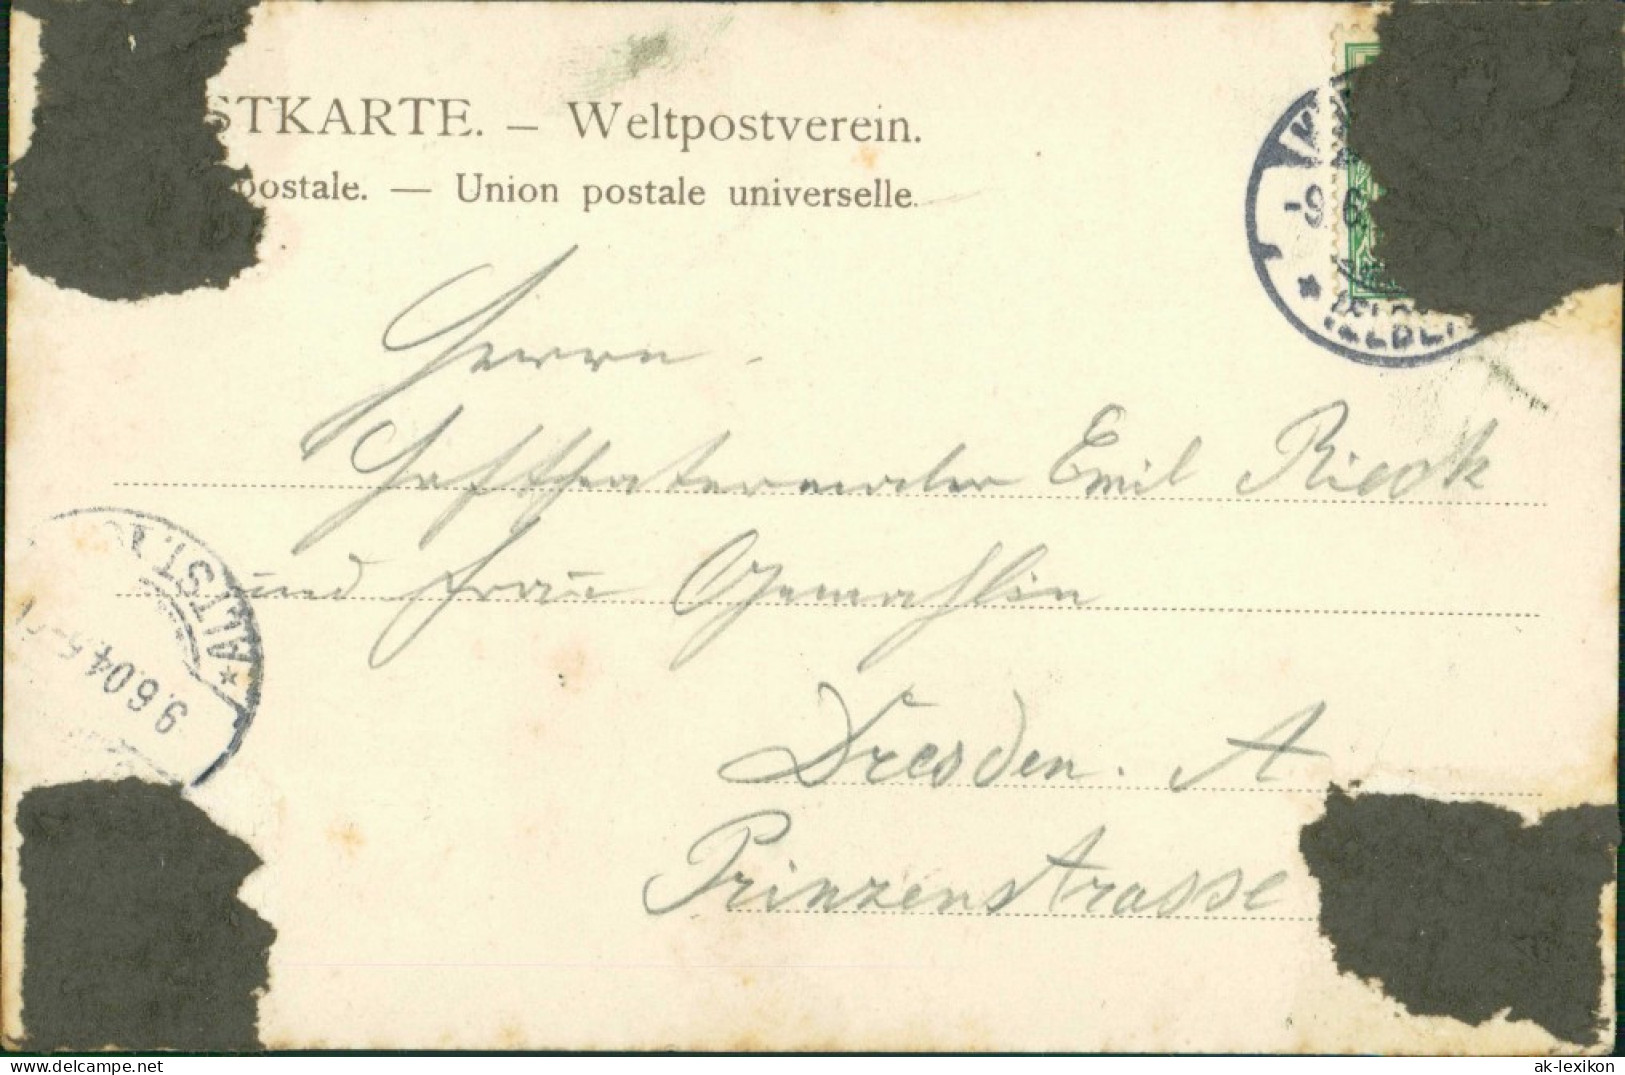 STKARTE. — Weltpostverein.
postale. — Union postale universelle.
-9.6.
(ELBE)
Herrn
Hoftheatermaler Emil Rieck
und Frau Gemahlin
ALTST.
9.6.04.
Dresden. A
Prinzenstrasse
hip-post.com
ak-lexikon